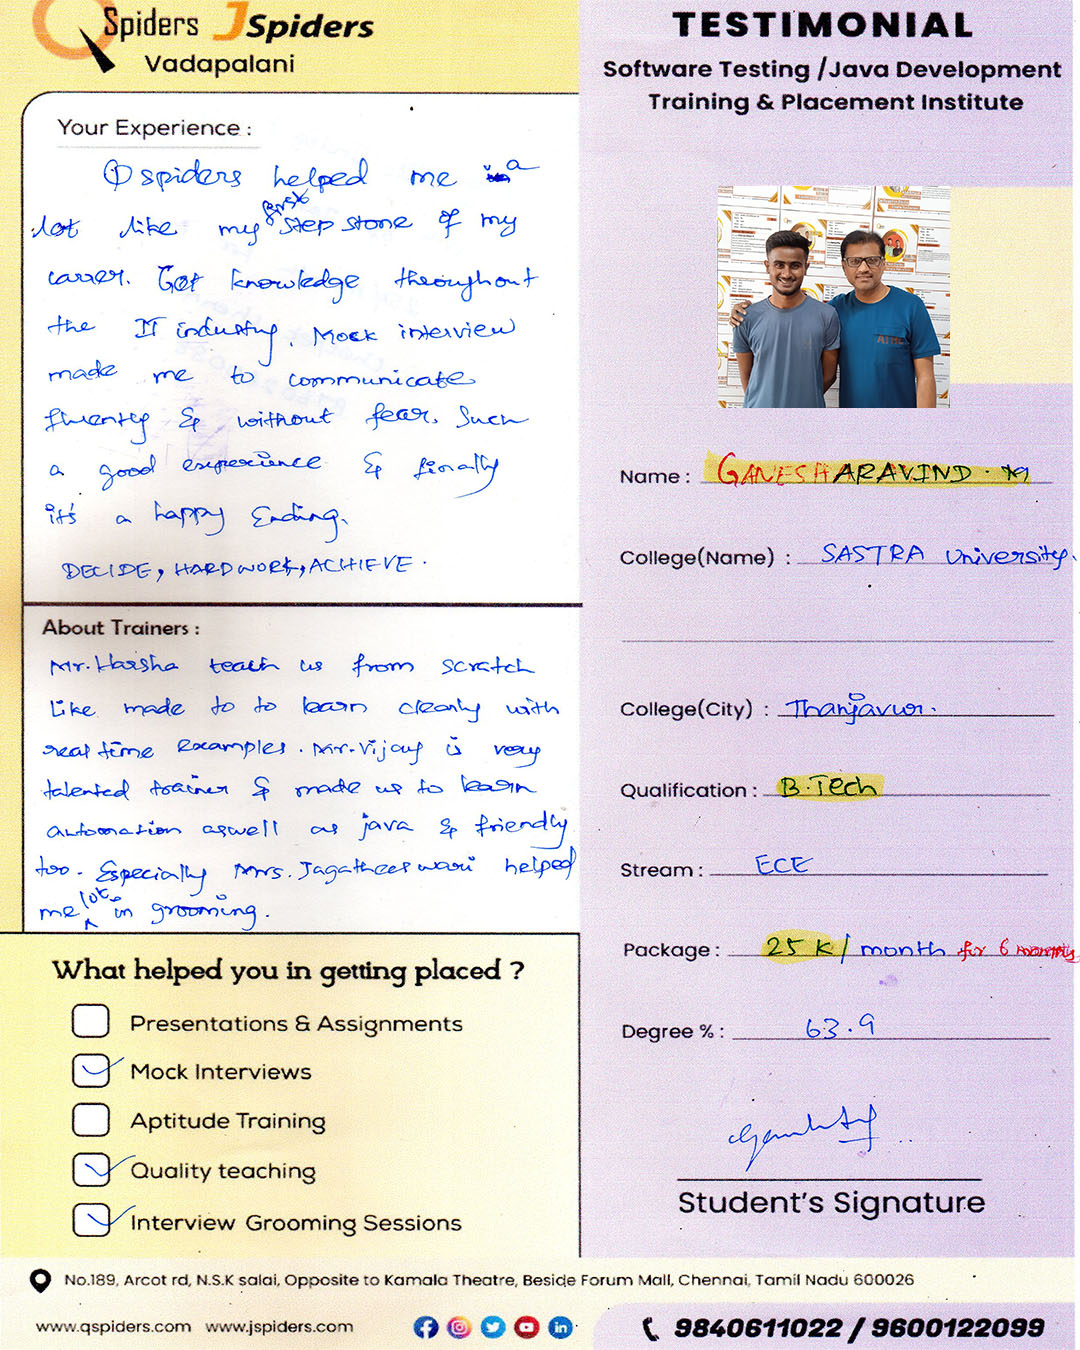 QSpiders JSpiders
Vadapalani
TESTIMONIAL
Software Testing /Java Development
Training & Placement Institute
Your Experience :
Qspiders helped me a
lot like my first step stone of my
carrer. Got knowledge throughout
the IT industry. Mock interview
made me to communicate
fluently & without fear. Such
a good experience & finally
it's a happy Ending.
DECIDE, HARDWORK, ACHIEVE.
About Trainers :
Mr. Harsha teach us from scratch
like made to to learn clearly with
real time examples. Mr. Vijay is very
talented trainer & made us to learn
automation aswell as java & friendly
too. Especially Mrs. Jagatheeswari helped
me lot in grooming.
What helped you in getting placed ?
Presentations & Assignments
Mock Interviews
Aptitude Training
Quality teaching
Interview Grooming Sessions
Name : GANESH ARAVIND . M
College(Name) : SASTRA University.
College(City) : Thanjavur.
Qualification : B.Tech
Stream : ECE
Package : 25 K/ month for 6 months
Degree % : 63.9
Student's Signature
No.189, Arcot rd, N.S.K salai, Opposite to Kamala Theatre, Beside Forum Mall, Chennai, Tamil Nadu 600026
www.qspiders.com www.jspiders.com
9840611022 / 9600122099